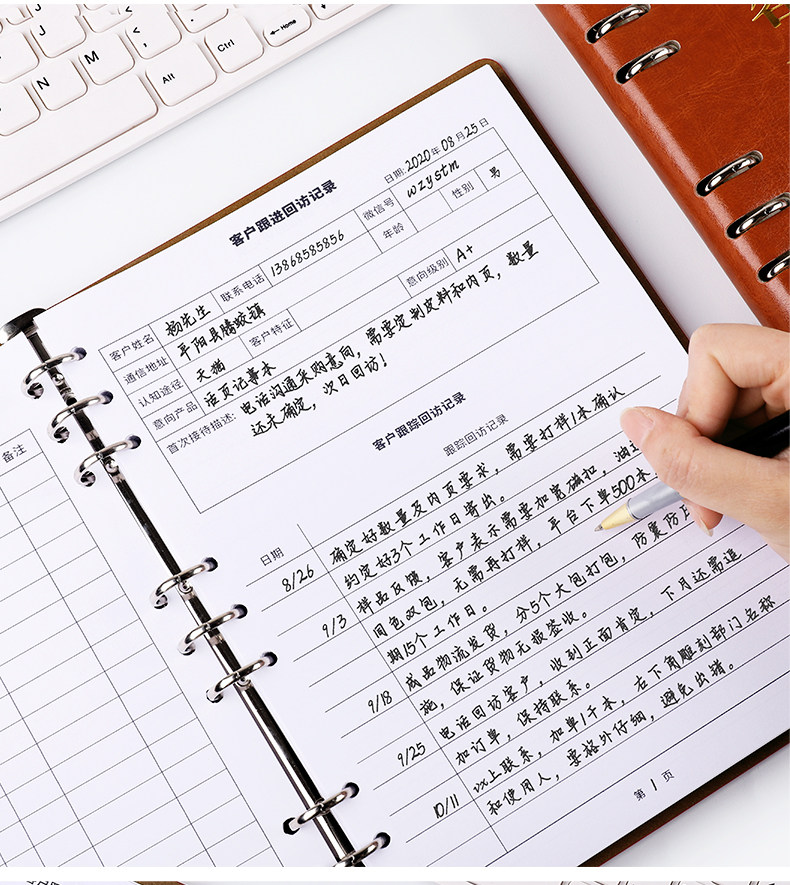 J
J
<
N
M
Alt
Ctrl
Home
备注
客户跟进回访记录
日期: 2020年08月25日
客户姓名 杨先生 联系电话 13868585856 微信号 wzystm 性别 男
通信地址 平阳县腾蛟镇 年龄
认知途径 天猫 客户特征 意向级别 A+
意向产品 活页记事本
首次接待描述: 电话沟通采购意向, 需要定制皮料和内页, 数量
还未确定, 次日回访!
客户跟踪回访记录
日期 跟踪回访记录
8/26 确定好数量及内页要求, 需要打样1本确认
约定好3个工作日寄出。
9/3 样品反馈, 客户表示需要加宽磁扣, 油
同色双包, 无需再打样, 平台下单500本
期15个工作日。
9/18 成品物流发货, 分5个大包打包, 防震防
施, 保证货物无损签收。
9/25 电话回访客户, 收到正面肯定, 下月还需追
加订单, 保持联系。
10/11 以上联系, 加单1千本, 右下角雕刻部门名称
和使用人, 要格外仔细, 避免出错。
第 1 页